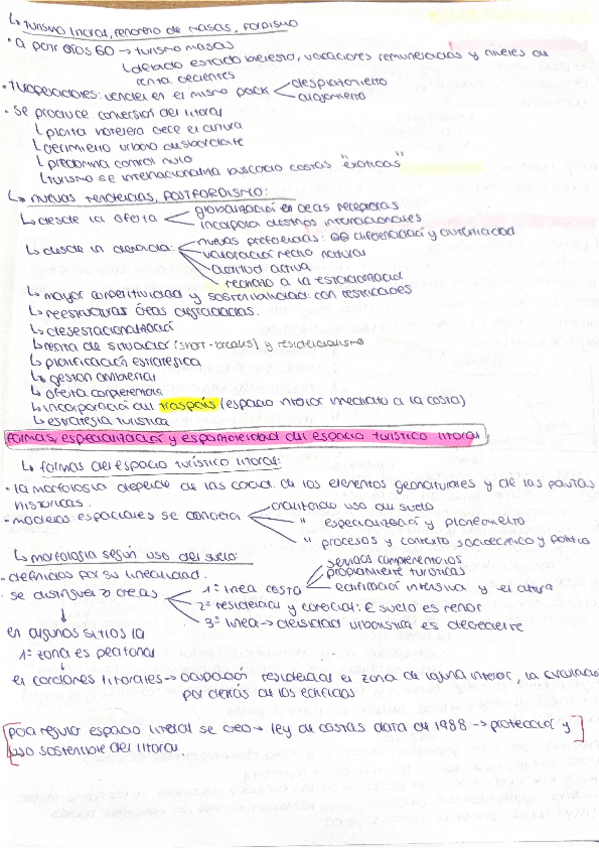 ↳ turismo litoral, fenómeno de masas, fordismo
• a partir años 60 → turismo masas
↳ debido estado bienestar, vacaciones remuneradas y niveles de
renta crecientes
• turoperadores: venden en el mismo pack < desplazamiento
alojamiento
• se produce conversión del litoral
↳ planta hotelera crece en altura
↳ crecimiento urbano desbordante
↳ predomina control nulo
↳ turismo se internacionaliza buscando costas "exóticas"
↳ nuevas tendencias, POSTFORDISMO:
↳ desde la oferta < globalización en áreas receptoras
incorpora destinos internacionales
↳ desde la demanda: nuevas preferencias: diferenciación y autenticidad
valoración medio natural
actitud activa
rechazo a la estacionalidad
↳ mayor competitividad y sostenibilidad con restricciones
↳ reestructuras áreas degradadas.
↳ desestacionalización
↳ renta de situación (short-breaks) y residencialismo
↳ planificación estratégica
↳ gestión ambiental
↳ oferta complementaria
↳ incorporación del traspaís (espacio interior inmediato a la costa)
↳ estrategia turística
formas, especialización y espontaneidad del espacio turístico litoral
↳ formas del espacio turístico litoral:
• la morfología depende de las caract. de los elementos geonaturales y de las pautas
históricas.
• modelos espaciales se concreta < analizando uso del suelo
" especialización y planeamiento
" procesos y contexto socioeconómico y político
↳ morfología según uso del suelo:
- definidos por su linealidad.
- se distinguen 3 áreas < 1ª línea costa < servicios complementarios
propiamente turísticas
edificación intensiva y en altura
2ª residencial y comercial: € suelo es menor
3ª línea → densidad urbanística es decreciente
↓
en algunos sitios la
1ª zona es peatonal
↓
en cordones litorales → ocupación residencial en zona de laguna interior, la circulación
por detrás de los edificios
[para regular espacio litoral se creó → ley de costas data de 1988 → protección y
uso sostenible del litoral.]